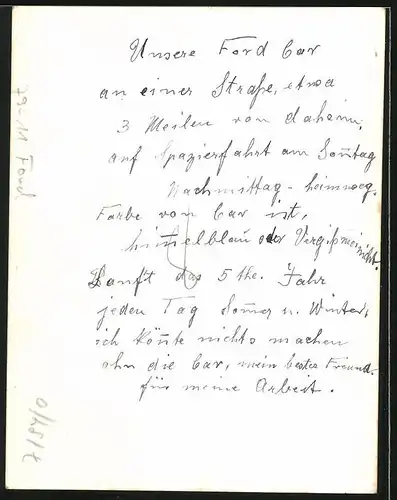 Unsere Ford Car
an einer Straße, etwa
3 Meilen von daheim,
auf Spazierfahrt am Soñtag
Nachmittag - heimweg.
Farbe von Car ist,
him̄elblau oder Vergißmeinicht.
Lauft das 5the. Jahr
jeden Tag Som̄er u. Winter,
ich köñte nichts machen
ohn die Car, mein bester Freund-
für meine Arbeit.
79-11 Ford